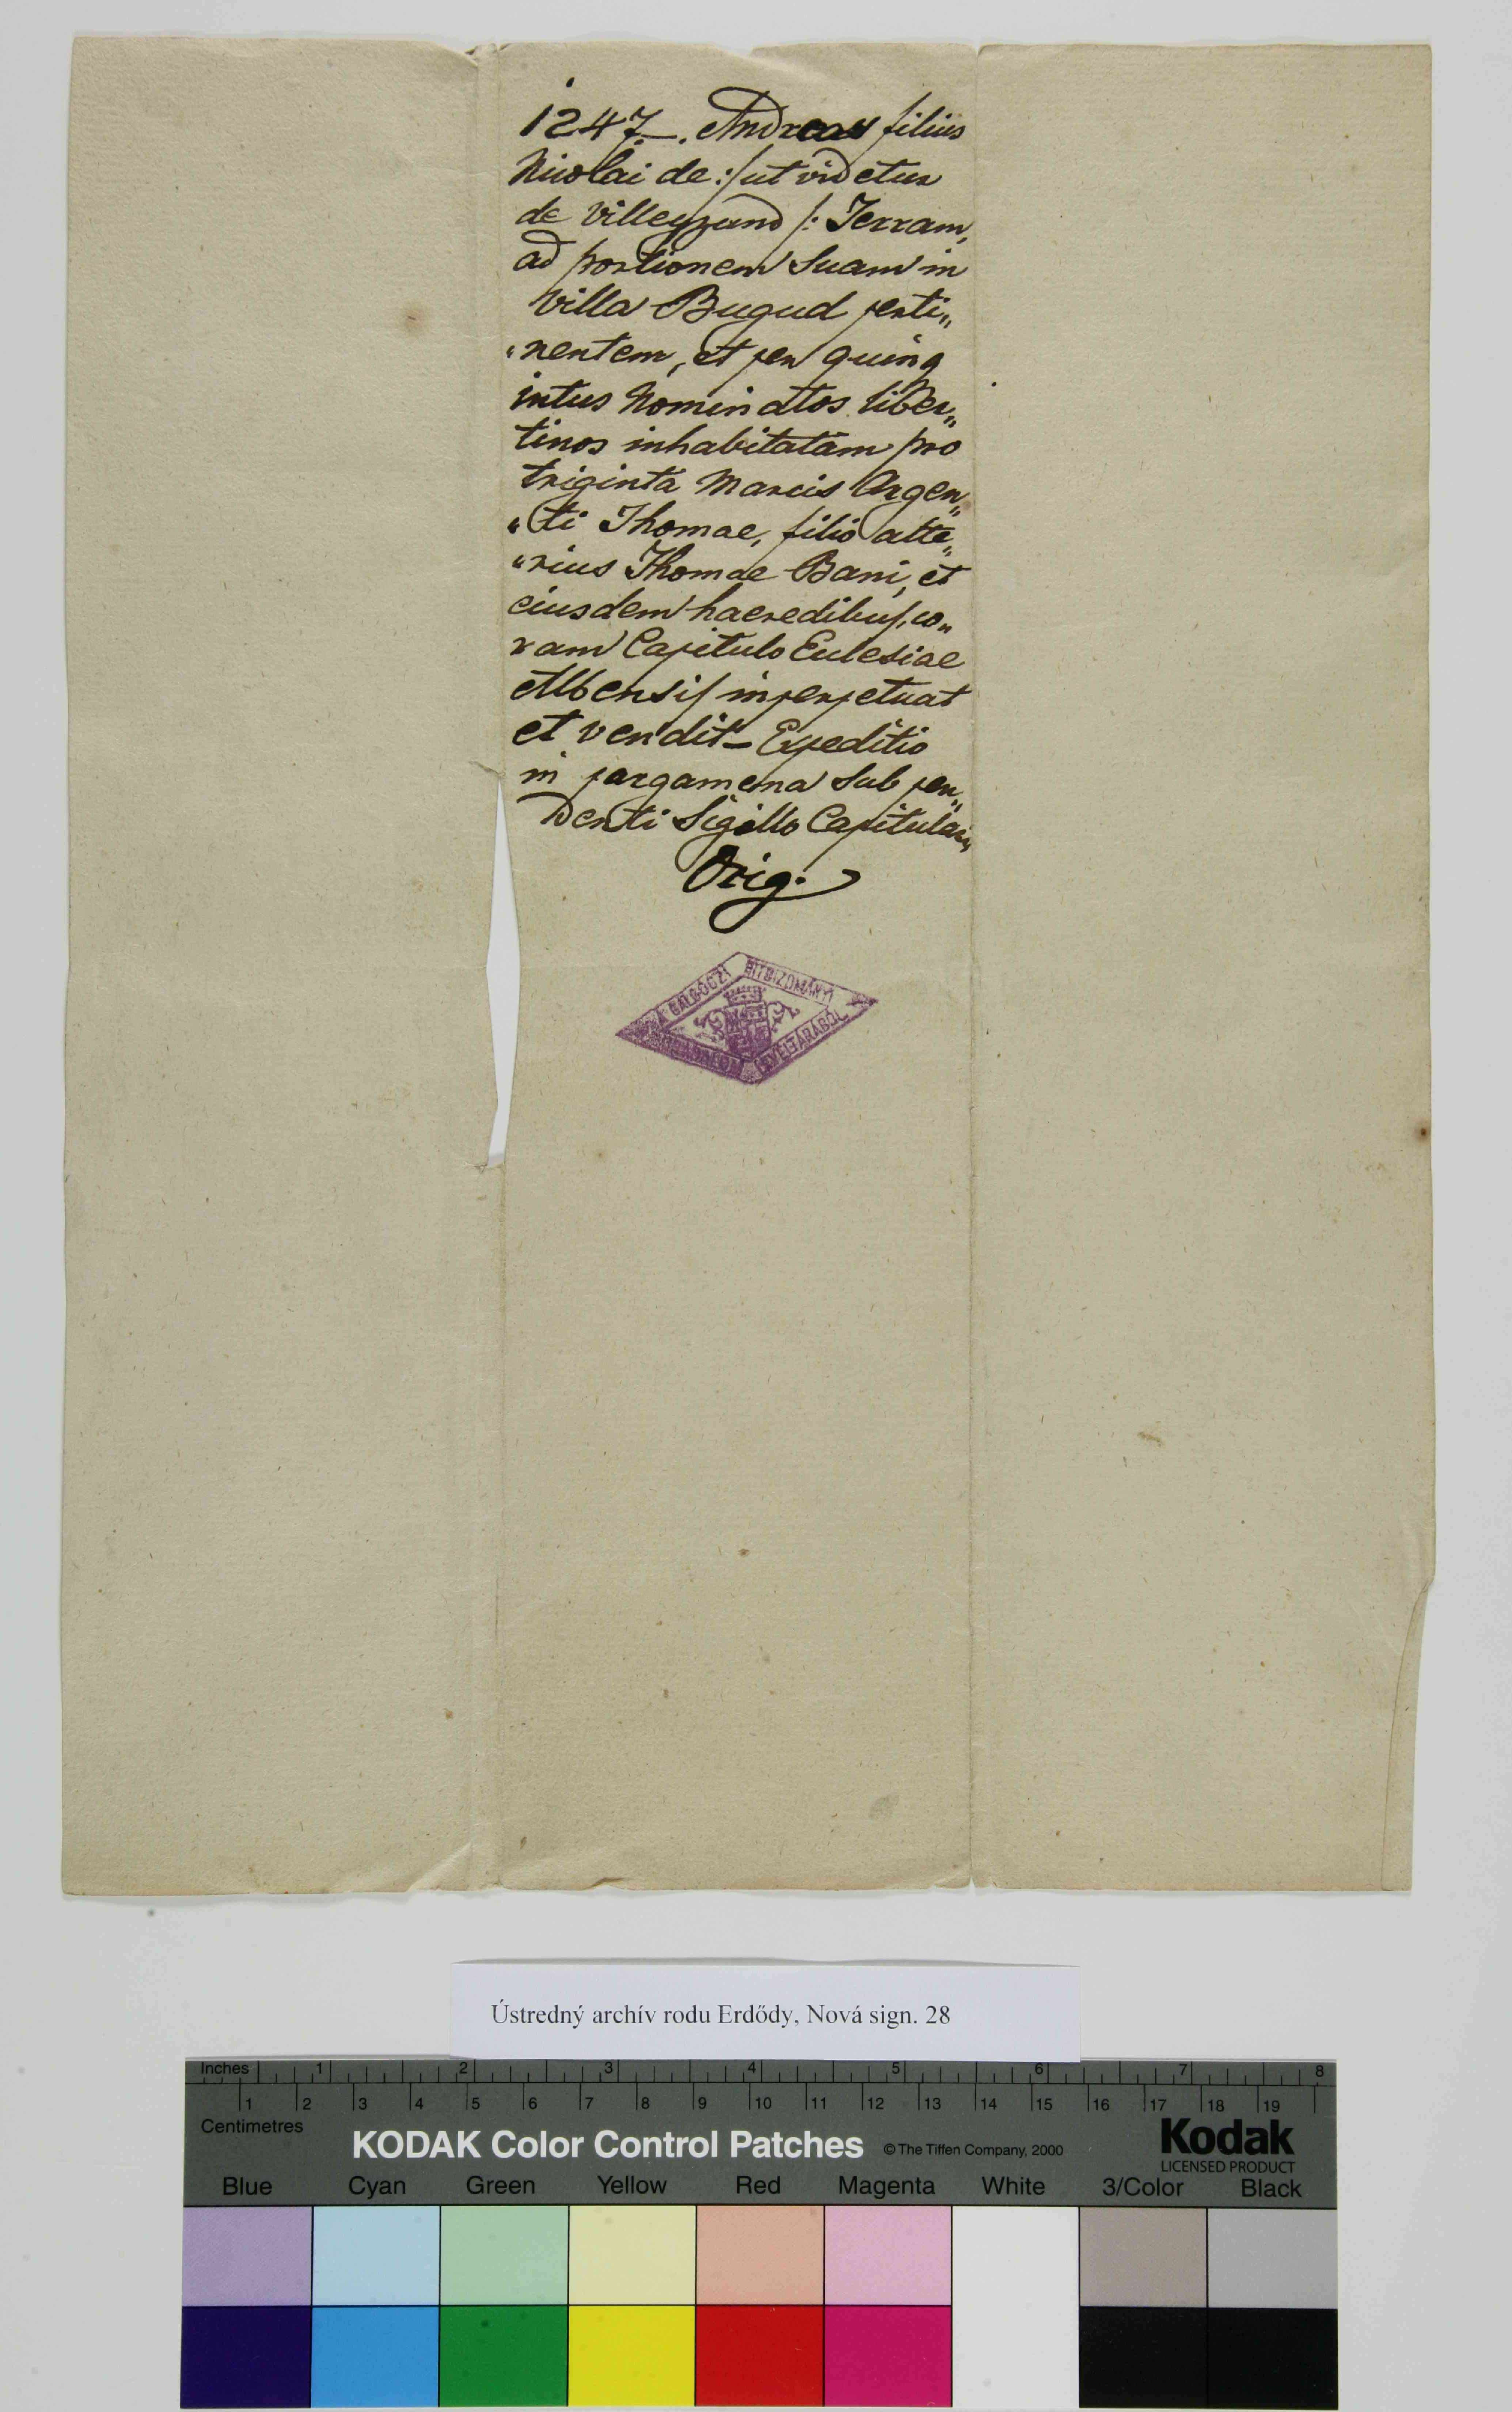 1247. Andreas filius
Nicolai de :/ut videtur
de Villeyzand /: Terram,
ad portionem Suam in
Villa Bugud perti„
„nentem, et per quinq
intus Nominatos liber„
tinos inhabitatam pro
triginta Marcis Argen„
„ti Thomae, filio alte„
„rius Thomae Bani, et
eiusdem haeredibus, co„
ram Capitulo Eclesiae
Albensis inperpetuat
et vendit – Expeditio
in pargamena Sub pen„
denti Sigillo Capitulari„
Orig.
A GALGÓCZI HITBIZOMÁNYI
URADALOM LEVÉLTÁRÁBÓL
Ústredný archív rodu Erdődy, Nová sign. 28
Inches 1 2 3 4 5 6 7 8
1 2 3 4 5 6 7 8 9 10 11 12 13 14 15 16 17 18 19
Centimetres
KODAK Color Control Patches © The Tiffen Company, 2000 Kodak
LICENSED PRODUCT
Blue Cyan Green Yellow Red Magenta White 3/Color Black